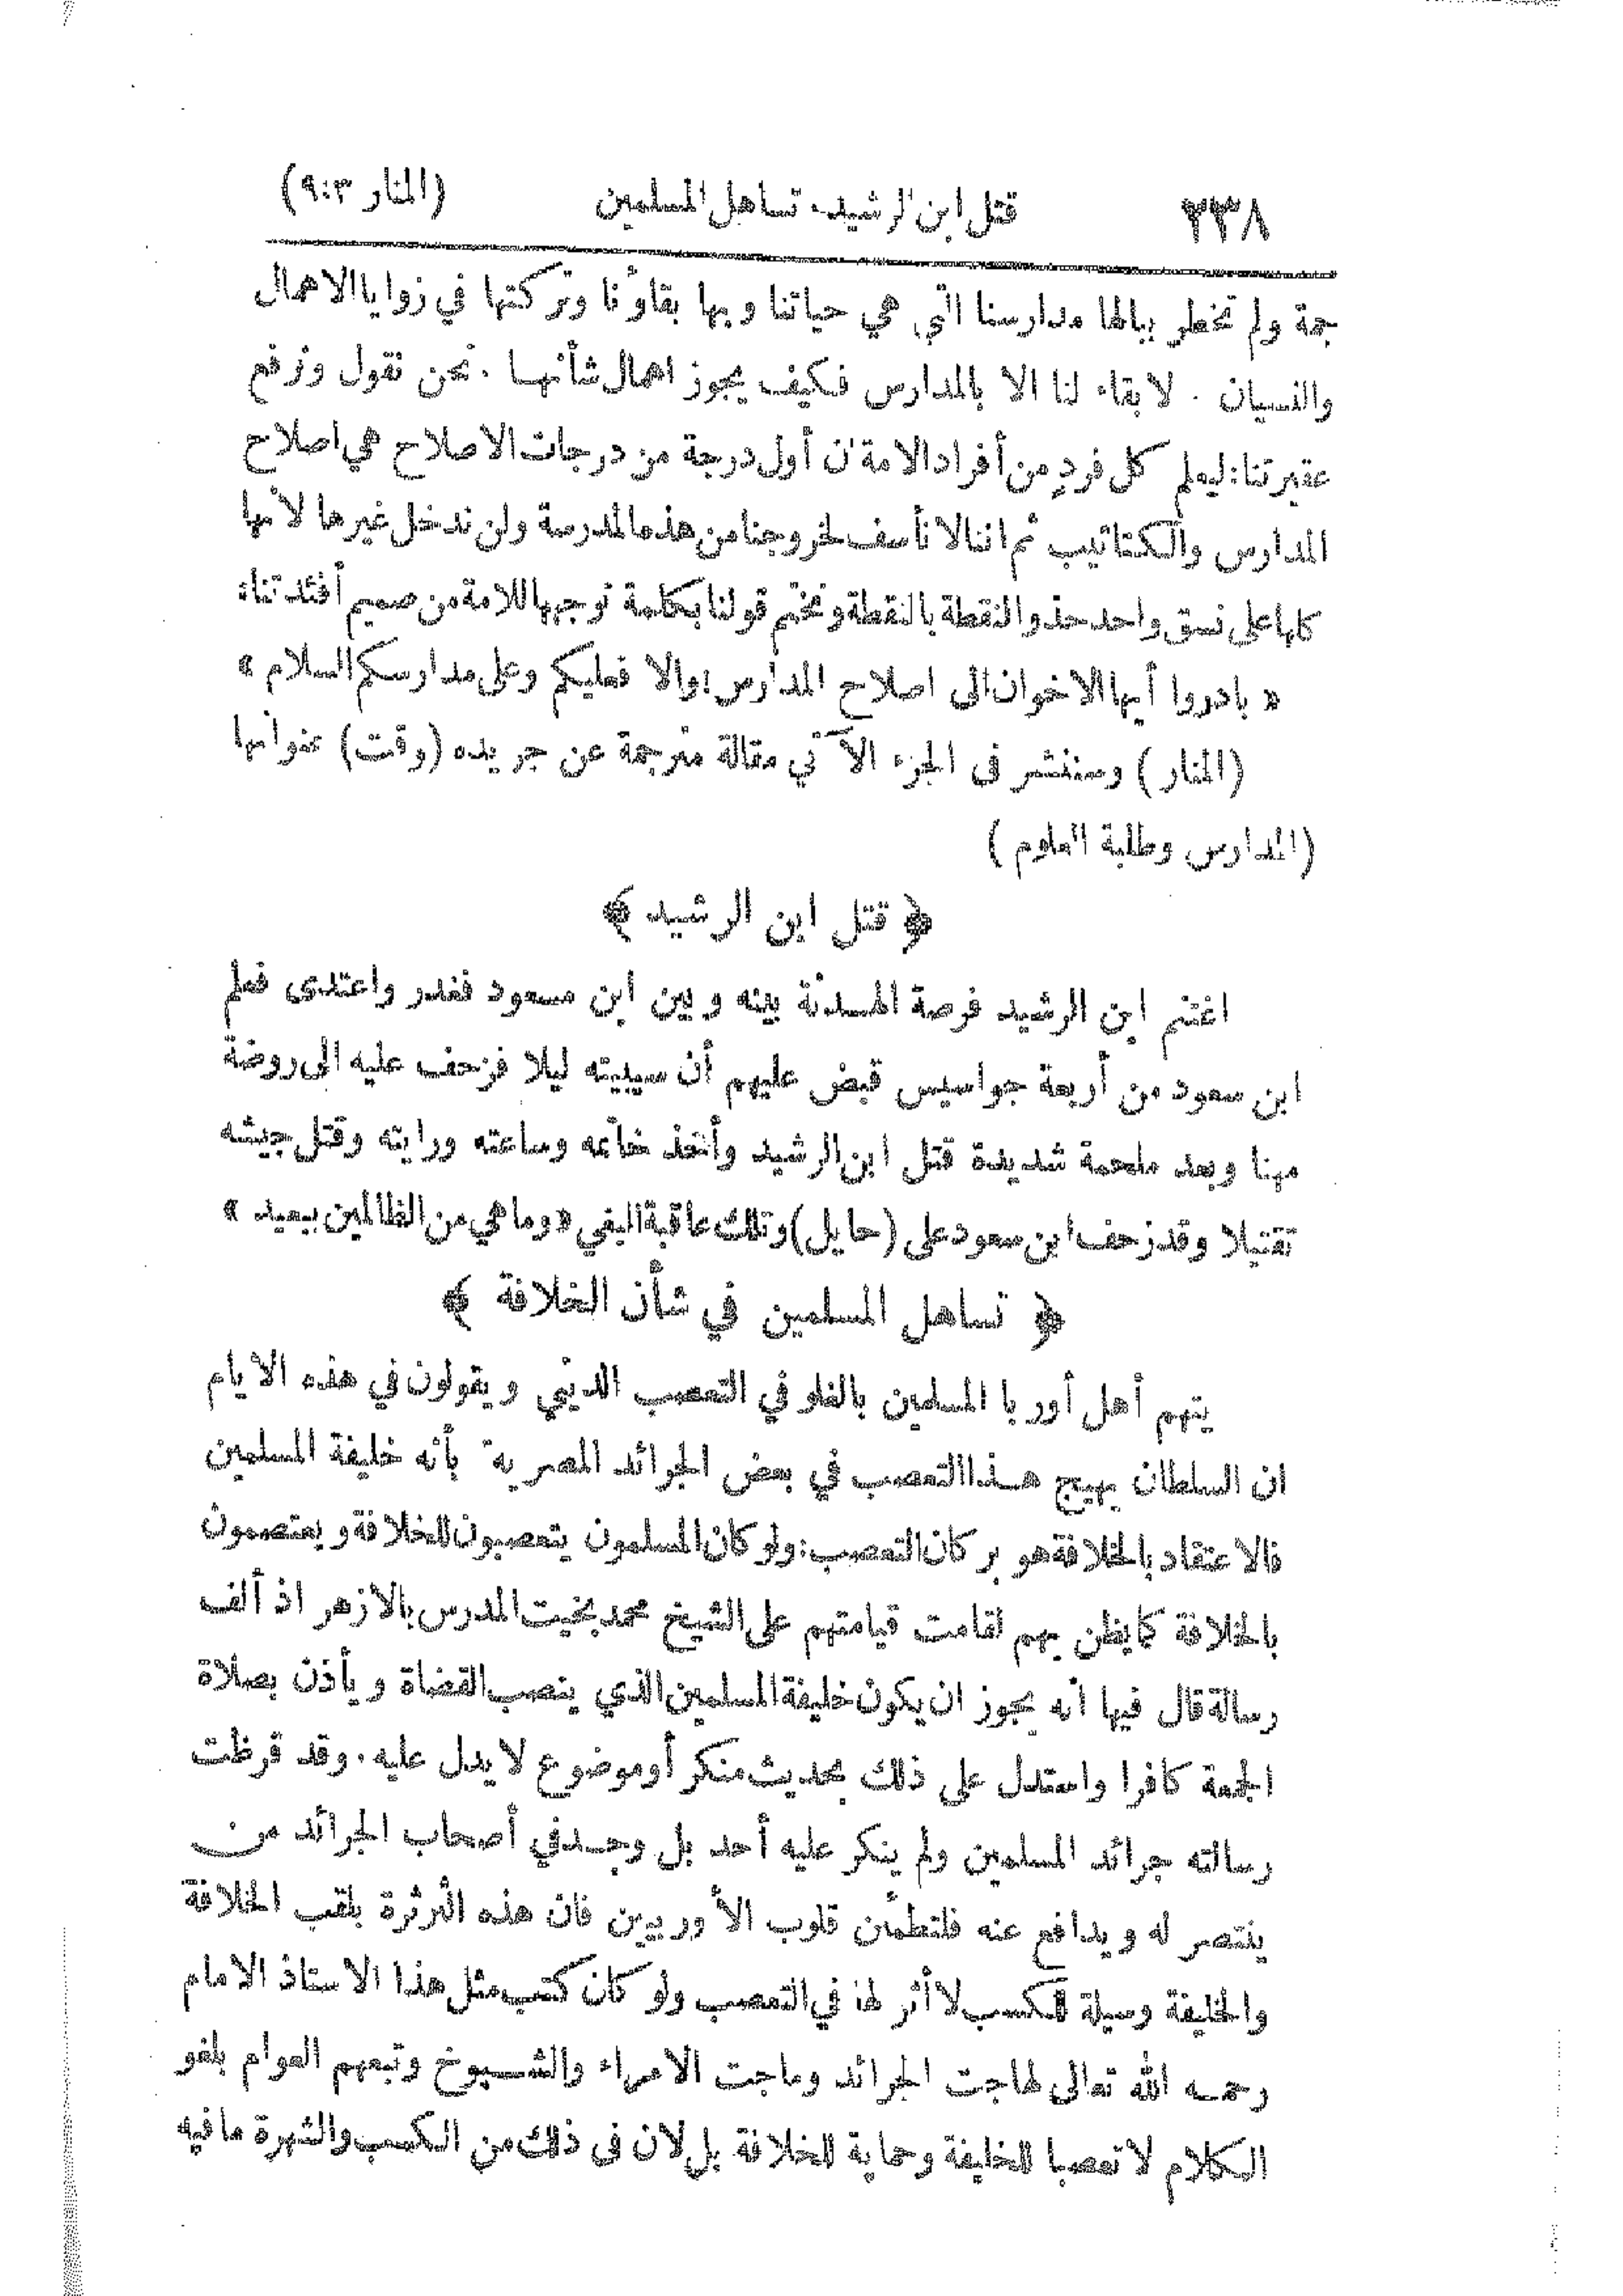 ٢٣٨ قتل ابن الرشيد. تساهل المسلمين (المنار ٩:٣)
جمة ولم تخطر ببالها مدارسنا التي هي حياتنا وبها بقاؤنا وتركتها في زوايا الاهمال
والنسيان . لا بقاء لنا الا بالمدارس فكيف يجوز اهمال شأنها . نحن نقول ونرفع
عقيرتنا: ليعلم كل فردٍ من أفراد الامة ان أول درجة من درجات الاصلاح هي اصلاح
المدارس والكتاتيب ثم اننا لا نأسف لخروجنا من هذه المدرسة ولن ندخل غيرها لأنها
كلها على نسق واحد حذو النقطة بالنقطة ونختم قولنا بكلمة نوجهها للامة من صميم أفئدتنا:
« بادروا أيها الاخوان الى اصلاح المدارس! والا فعليكم وعلى مدارسكم السلام »
(المنار) وسننشر فى الجزء الآتي مقالة مترجمة عن جريده (وقت) عنوانها
(المدارس وطلبة العلوم)
﴿ قتل ابن الرشيد ﴾
اغتنم ابن الرشيد فرصة الهدنة بينه وبين ابن سعود فغدر واعتدى فعلم
ابن سعود من أربعة جواسيس قبض عليهم أن سيبيته ليلا فزحف عليه الى روضة
مهنا وبعد ملحمة شديدة قتل ابن الرشيد وأخذ خاتمه وساعته ورايته وقتل جيشه
تقتيلا وقد زحف ابن سعود على (حايل) وتلك عاقبة البغي « وما هي من الظالمين ببعيد »
﴿ تساهل المسلمين في شأن الخلافة ﴾
يتهم أهل أوربا المسلمين بالغلو في التعصب الديني ويقولون في هذه الأيام
ان السلطان يهيج هذا التعصب في بعض الجرائد المصرية بأنه خليفة المسلمين
فالاعتقاد بالخلافة هو بركان التعصب: ولو كان المسلمون يتعصبون للخلافة ويعتصمون
بالخلافة كما يظن بهم لقامت قيامتهم على الشيخ محمد بخيت المدرس بالازهر اذ ألف
رسالة قال فيها أنه يجوز ان يكون خليفة المسلمين الذي ينصب القضاة ويأذن بصلاة
الجمعة كافرا واستدل على ذلك بحديث منكر أو موضوع لا يدل عليه. وقد قرظت
رسالته جرائد المسلمين ولم ينكر عليه أحد بل وجد في أصحاب الجرائد من
ينتصر له ويدافع عنه فلتطمئن قلوب الأوربيين فان هذه الثرثرة بلقب الخلافة
والخليفة وسيلة للكسب لا أثر لها في التعصب ولو كان كتب مثل هذا الاستاذ الامام
رحمه الله تعالى لهاجت الجرائد وماجت الامراء والشيوخ وتبعهم العوام بلغو
الكلام لا تعصبا للخليفة وحماية للخلافة بل لان فى ذلك من الكسب والشهرة ما فيه